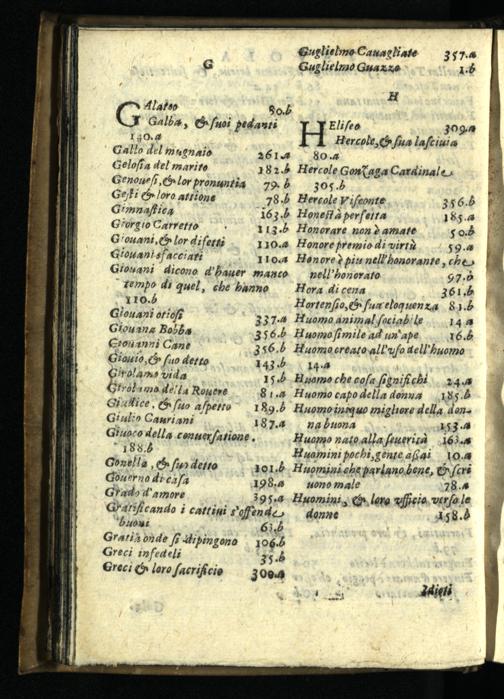 G
GAlateo 80.b
Galba, & suoi pedanti
140.a
Gallo del mugnaio 261.a
Gelosia del marito 182.b
Genouesi, & lor pronuntia 79.b
Gesti & loro attione 78.b
Gimnastica 163.b
Giorgio Carretto 113.b
Giouani, & lor difetti 110.a
Giouani sfacciati 110.a
Giouani dicono d'hauer manco
tempo di quel, che hanno
110.b
Giouani otiosi 337.a
Giouanna Bobba 356.b
Giouanni Cane 356.b
Giouio, & suo detto 143.b
Girolamo vida 15.b
Girolamo della Rouere 81.a
Giudice, & suo aspetto 189.b
Giulio Cauriani 187.a
Giuoco della conuersatione.
188.b
Gonella, & suo detto 101.b
Gouerno di casa 198.a
Grado d'amore 395.a
Gratificando i cattiui s'offende
buoni 63.b
Gratia onde si dipingono 106.b
Greci infedeli 35.b
Greci & loro sacrificio 300.a
Guglielmo Cauagliate 357.a
Guglielmo Guazzo 1.b
H
HEliseo 309.a
Hercole, & sua lasciuia
80.a
Hercole Gonzaga Cardinale
305.b
Hercole Visconte 356.b
Honestà perfetta 185.a
Honorare non è amate 50.b
Honore premio di virtù 59.a
Honore è piu nell'honorante, che
nell'honorato 97.b
Hora di cena 361.b
Hortensio, & sua eloquenza 81.b
Huomo animal sociabile 14.a
Huomo simile ad un'ape 16.b
Huomo creato all'vso dell'huomo
14.a
Huomo che cosa significhi 24.a
Huomo capo della donna 185.b
Huomo iniquo migliore della don-
na buona 153.a
Huomo nato alla seuerità 163.a
Huomini pochi, gente aßai 10.a
Huomini che parlano bene, & scri
uono male 78.a
Huomini, & loro vfficio verso le
donne 158.b
Idioti